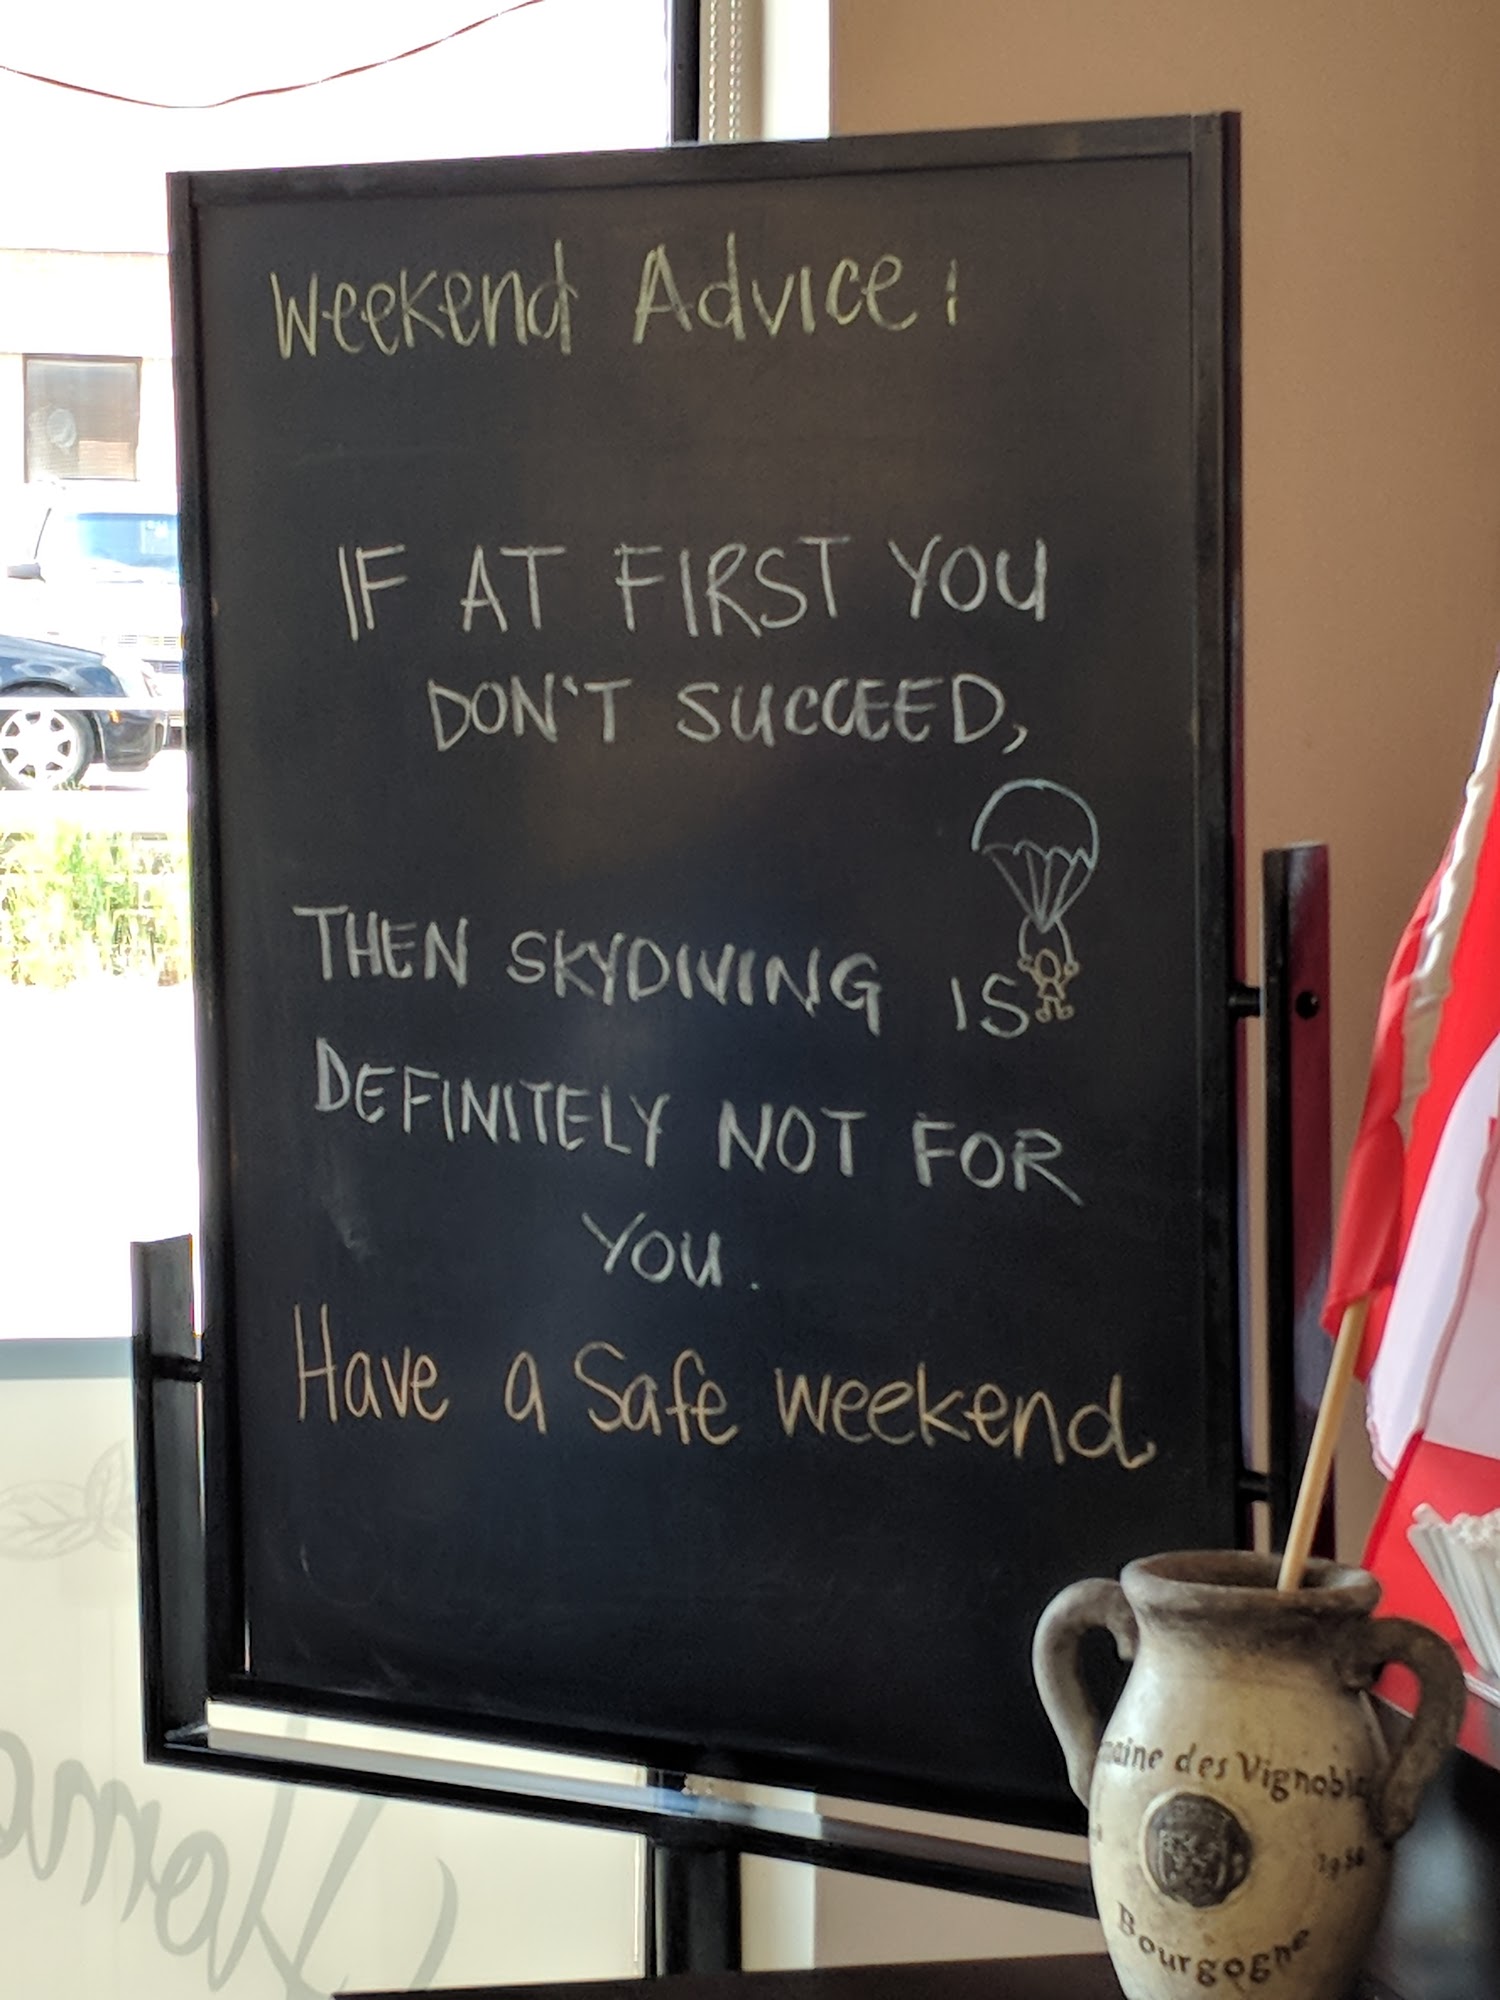 Weekend Advice:
IF AT FIRST YOU
DON'T SUCCEED,
THEN SKYDIVING IS
DEFINITELY NOT FOR
YOU.
Have a Safe weekend
des Vignobles
Bourgogne